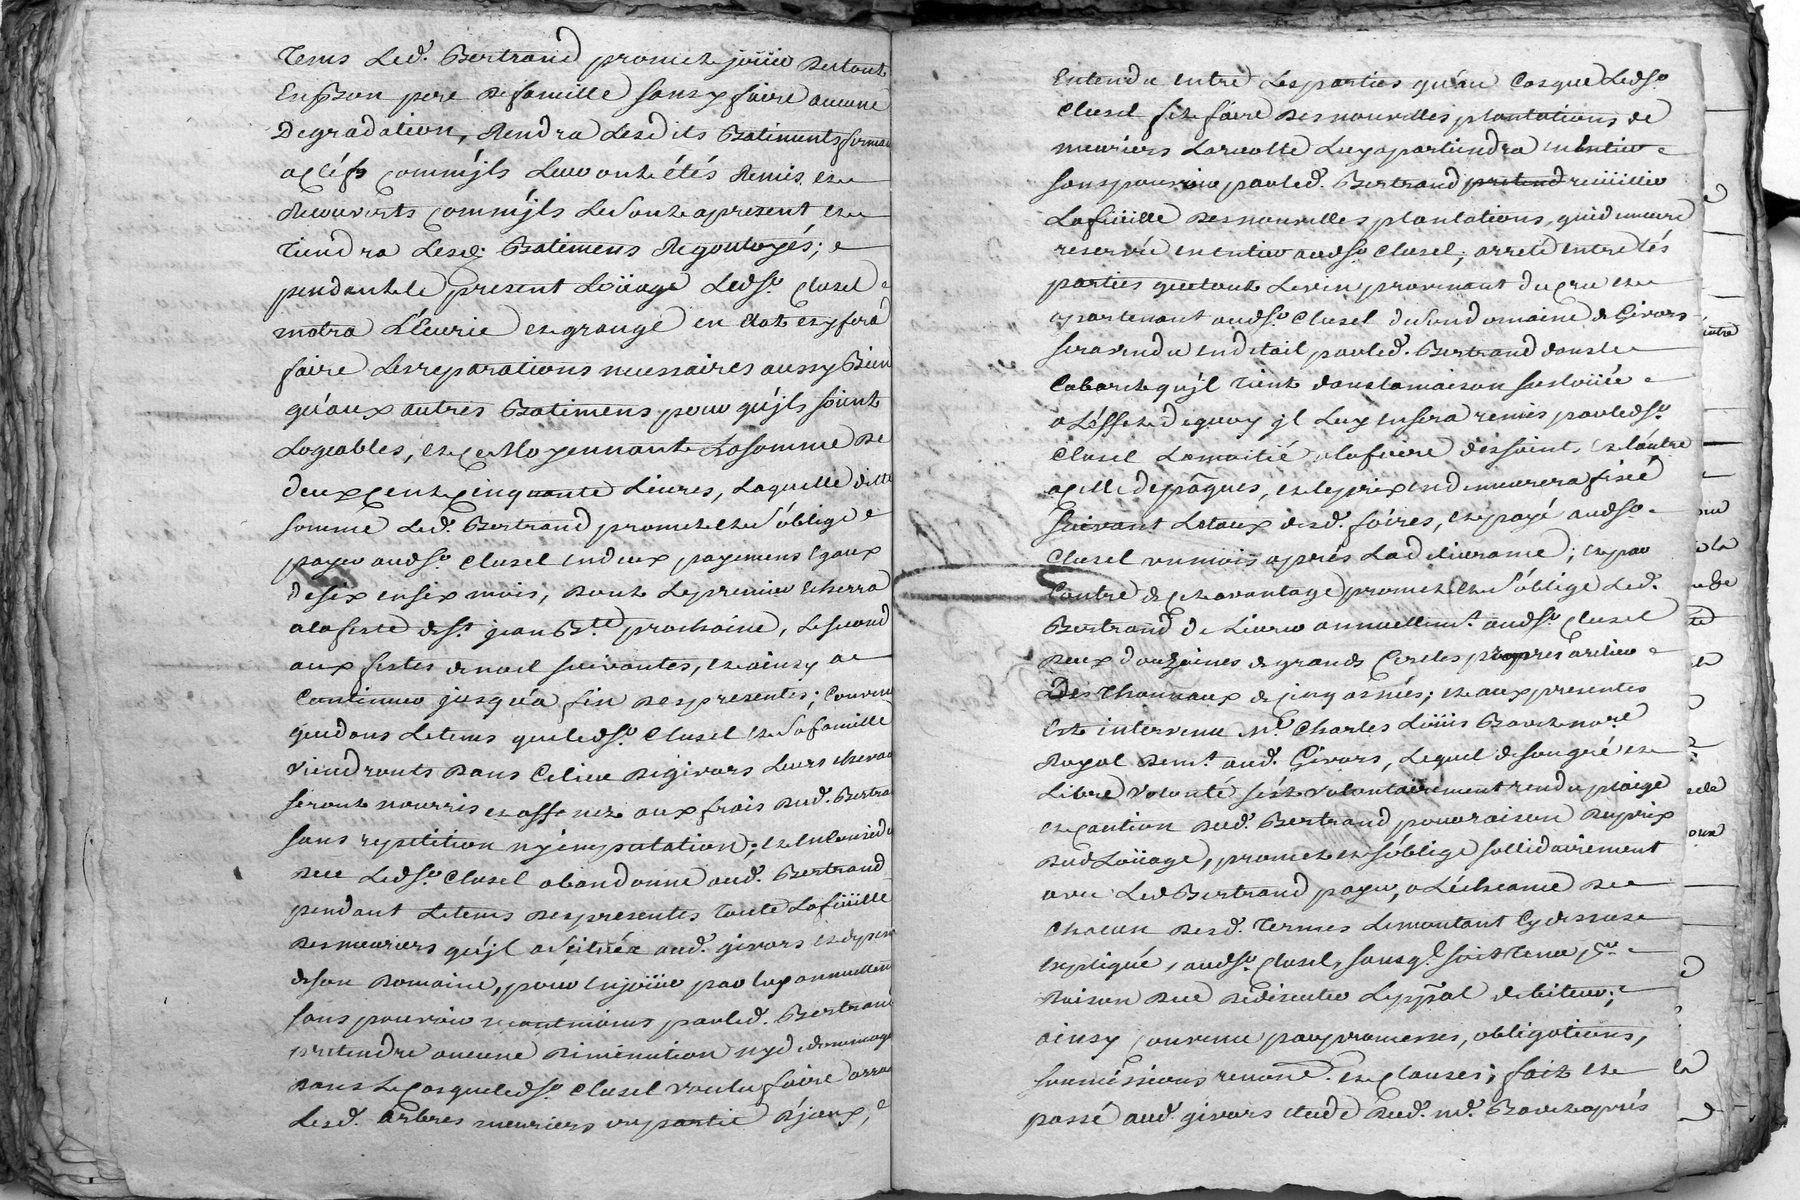 tems Led. Bertrand promet jöuir Du tout
En bon pere De famille sans y faire aucune
Degradation, Rendra Lesdits Batiments fermer
a cléfs comm'ïls Luy ont étés Remis, et
Recouverts comm'ïls Le sont apresent et
tiendra Lesd. Batimens Regoutoyés;
pendant le present Loüage Led. Sr. Clusel
motra L'Ecurie et grange en Etat et y fera
faire Les reparations necessaires aussy Bien
qu'aux autres Batimens pour qu'ïls soient
Logeables, et ce Moyennant La somme De
deux cent cinquante Livres, Laquelle ditte
somme Led. Bertrand promet et s'oblige
payer aud. Sr. Clusel en deux payemens Egaux
De six en six mois, Dont Le premier Echerra
a la feste de St. jean Bte. prochaine, Le second
aux festes de noel suivantes, et ainsy a
Continuer jusqu'a fin Des presentes; Convenu
que dans Le tems que led. Sr. Clusel et sa famille
viendronts Dans Ce lieu De givors Leurs chevaux
seront nourris et affenez aux frais Dud. Bertrand
sans repetition ny imputation; et En Consid
Led. Sr. Clusel abandonne aud. Bertrand
pendant Le tems Des presentes toute La feüille
Des meuriers qu'il a situéz aud. givors et dépend
De son Domaine, pour En jöuir par luy annuellement
sans pouvoir neantmoins par led. Bertrand
pretendre aucune Diminution ny dedommage
Dans Le Cas que led. Sr. Clusel voulu faire arra
Lesd. arbres meuriers en partie D'jceux,
Entendu entre Les parties qu'au Cas que Led. Sr.
Clusel fit faire Des nouvelles plantations de
meuriers La recolte Luy apartiendra en Entier
sans pouvoir par led. Bertrand pretend recüillir
La feüille Des nouvelles plantations, qui demeure
reservée en entier aud. Sr. Clusel; arreté entre Lés
parties que tout Le vin provenant du cru et
apartenant aud. Sr. Clusel de son domaine de Givors
sera vendu en detail par led. Bertrand dans le
Cabaret qu'il tient dans la maison sus loüée
a L'éffet De quoy jl Luy en sera remis par led. Sr.
Clusel La moitié a la foire des saints, et L'autre
a celle de pâques, et le prix en demeurera fixé
suivant Le taux desd. foires, et payé aud. Sr.
Clusel un mois aprés La delivrance; et par
Contre de Cet avantage promet et s'oblige Led.
Bertrand de Livrer annuellemt. aud. Sr. Clusel
Deux douzaines de grands Cercles propres a relier
Des thonneaux de cinq asnées; et aux presentes
Est intervenu Me. Charles Loüis Bavet nore.
Royal Demt. aud. Givors, Lequel de son gré et
Libre volonté s'est volontairement rendu plaige
et caution Dud. Bertrand pour raison Du prix
Dud. Loüage, promet et s'oblige sollidairement
avec Led. Bertrand payer, a L'écheance De
chacun Desd. termes Le montant Cy dessus
Expliqué, aud. Sr. Clusel, sans q. soit tenu
Raison De Dediscuter Le ppal debiteur;
ainsy convenu par promesses, obligations,
soumissions renonc. et clauses; fait et
passé aud. givors etude Dud. Me. Bavet aprés